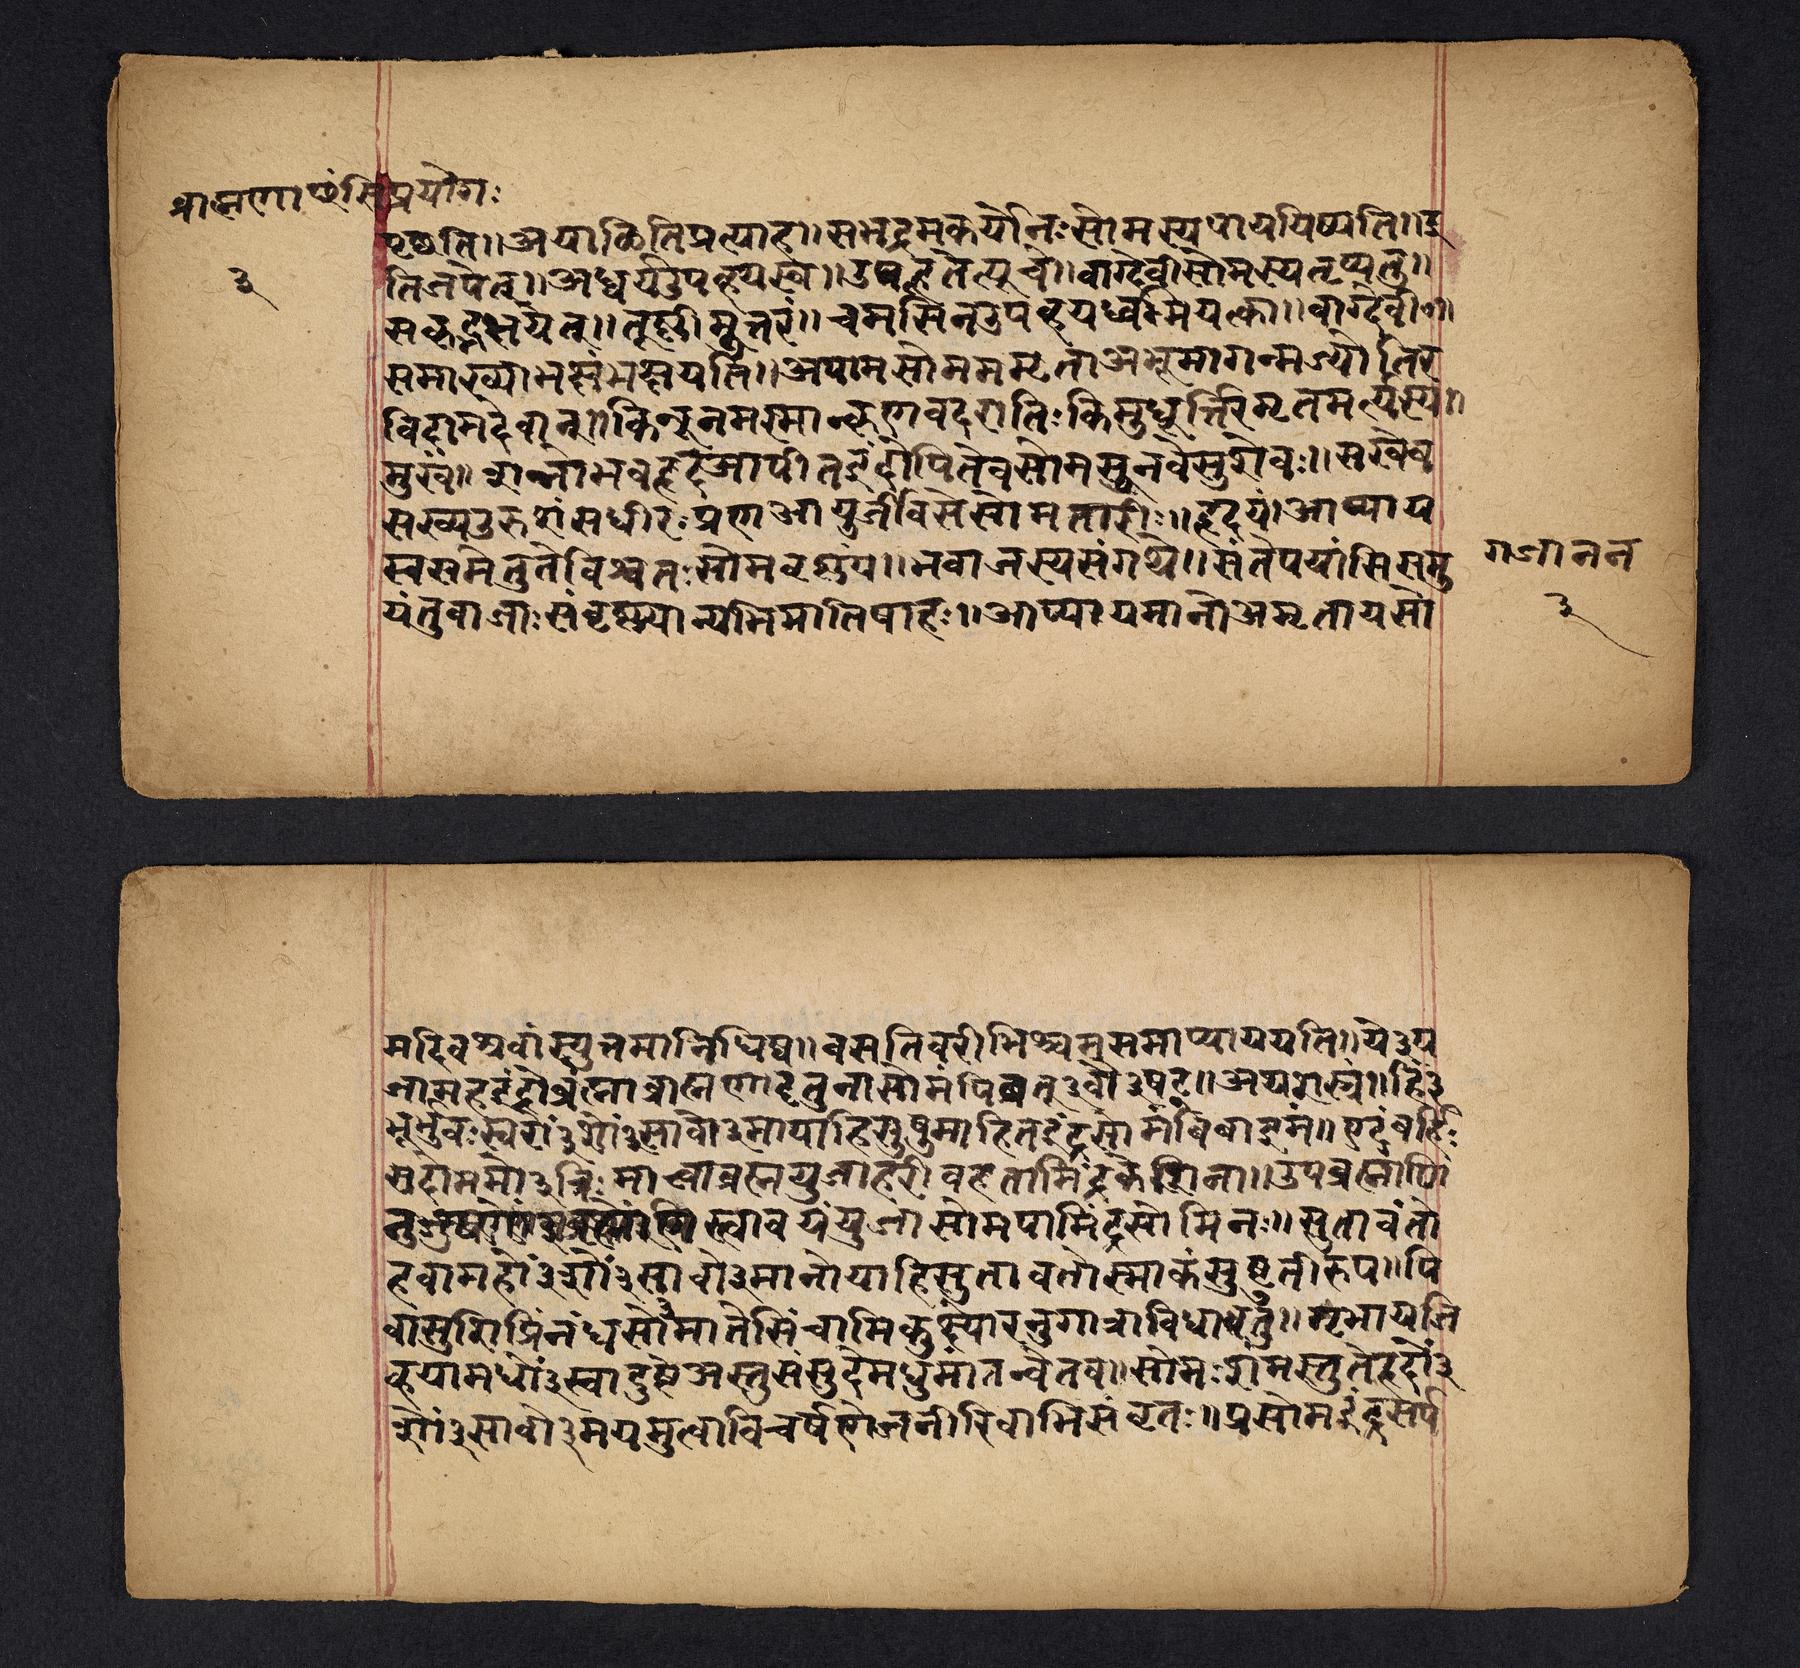 ब्राह्मणाछंसिप्रयोगः
३
पृच्छति॥अयाळितिप्रत्याह॥सभद्रमकर्योनःसोमस्यपाययिष्यति॥इ
तिजपेत्॥अध्वर्यउपह्वयस्व॥उपहूतेत्यूचे॥वाग्देवीसोमस्यतृप्यतु॥
सकृद्भक्षयेत्॥तूष्णीमुत्तरं॥चमसिनउपह्वयध्वमित्युक्त्वा॥वाग्देवी०॥
समाख्याभक्षंभक्षयति॥अपामसोमममृताअभूमागन्मज्योतिर
विदामदेवान्॥किंनूनमस्मान्कृणवदरातिःकिमुधूर्त्तिरमृतमर्त्यस्य॥
मुखं॥शन्नोभवहृदआपीतइंदोपितेवसोमसूनवेसुशेवः॥सखेव
सख्यउरुशंसधीरःप्रणआयुर्जीवसेसोमतारीः॥हृदयं॥आप्याय
स्वसमेतुतेविश्वतःसोमवृष्ण्यं॥भवाजस्यसंगथे॥संतेपयांसिसमु
गजानन
३
यंतुवाजाःसंवृष्ण्यान्यभिमातिषाहः॥आप्यायमानोअमृतायसो
मदिविश्रवांस्युत्तमानिधिष्व॥वसतिवरीभिश्चमसमाप्याययति॥ये३य
जामहइंद्रोब्रह्माब्राह्मणादृतुनासोमंपिबतू३वौ३षट्॥अथशस्त्रं॥हिं३
भूर्भुवःस्वरों३शों३सावो३मायाहिसुषुमाहितइंद्रसोमंपिबाइमं॥एदंबर्हिः
सदोममो३न्निःमात्वाब्रह्मयुजाहरीवहतामिंद्रकेशिना॥उपब्रह्माणि
नःशृणो३ब्रह्माणस्त्वावयंयुजासोमपामिंद्रसोमिनः॥सुतावंतो
हवामहों३शों३सावो३मानोयाहिसुतावतोस्माकंसुष्टुतीरुप॥पि
बासुशिप्रिंनंधसो३मातेसिंचामिकुक्ष्योरनुगात्राविधावतु॥गृभायजि
ह्वयामधों३स्वादुष्टेअस्तुसंसुदेमधुमांतन्वेतव॥सोमःशमस्तुतेहृदों३
शों३सावो३मयमुत्वाविचर्षणेजनीरिवाभिसंवृतः॥प्रसोमइंद्रसर्प